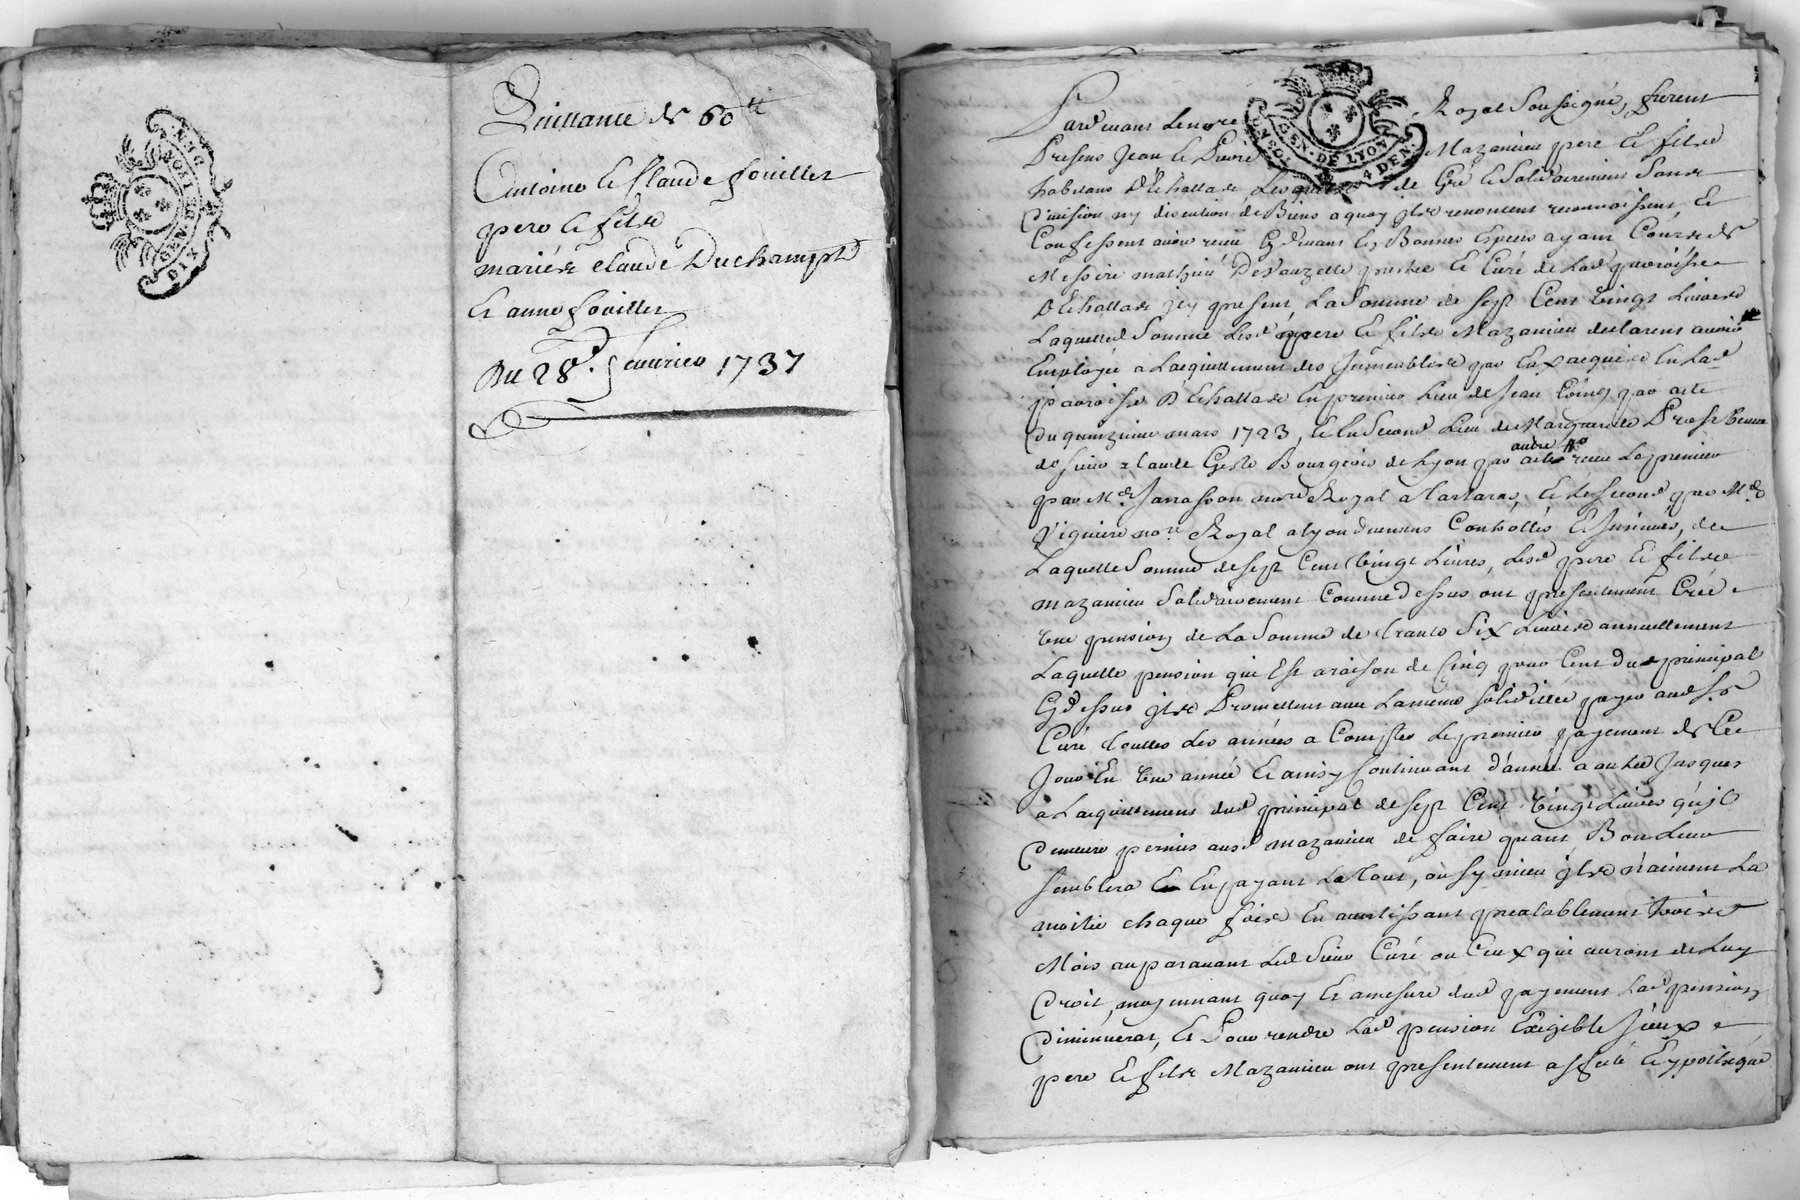 DIX DEN.
GEN. DE LYON
Quittance de 60 ll
Antoine & Claude fouilleu
pere & fils
mariés claude Duchampt
Et anne fouilleu
Du 28e. feurier 1737
GEN. DE LYON
CINEQ. 4 DEN.
Pardeuant Le no.re Royal Soussigné, furent
Presens Jean & Pierre Mazamieu pere & fils
habitans d'Echallas, Lesquels de Gré & Solidairement Sans
Diuision ny discution de Biens a quoy ils renoncent reconnoissent &
Confessent auoir receu Cy deuant En Bonnes Especes ayant Cours de
Messire mathieu Deuauzelle prestre & Curé de Lad. parroisse
d'Echallas icy present, La Somme de Sept Cent Vingt Liures
Laquelle Somme Lesd. pere & fils Mazamieu declarent auoir
Employée a Lacquittement des Immeubles par Eux acquis En Lad.
parroisse d'Echallas En premier Lieu de Jean par acte
du quinzieme mars 1723, & En Second Lieu de Marguerite veuue
de Sieur Claude Bourgeois de Lyon par autre acte receu Le premier
par Me. Jarrasson no.re Royal a Tartaras, & Le Second par Me.
Viguiere no.re Royal a Lyon duement Controllés & Insinués, de
Laquelle Somme de Sept Cent Vingt Liures, Lesd. pere & fils
mazamieu Solidairement Comme dessus ont presentement Créé
Vne pension de La Somme de trante Six Liures annuellement
Laquelle pension qui Est a raison de Cinq pour Cent du principal
Cy dessus ils Promettent auec La meme Solidittée payer aud. Sr.
Curé touttes Les années a Compter Le premier payement de Ce
Jour En Vne année & ainsy Continuant d'année a autre Jusques
a Lacquittement dud. principal de Sept Cent Vingt Liures qu'il
Demeure permis ausd. mazamieu de faire quant Bon Leur
Semblera En payant Le tout, où Sy mieu ils n'aiment La
moitié chaque fois En auertissant prealablement trois
Mois auparauant Led. Sieur Curé ou Ceux qui auront de Luy
Droit, moyennant quoy Et a mesure dud. payement Lad. pension
Diminuerat, Et Pour rendre Lad. pension Exigible Iceux
pere & fils Mazamieu ont presentement affecté & ypotequé